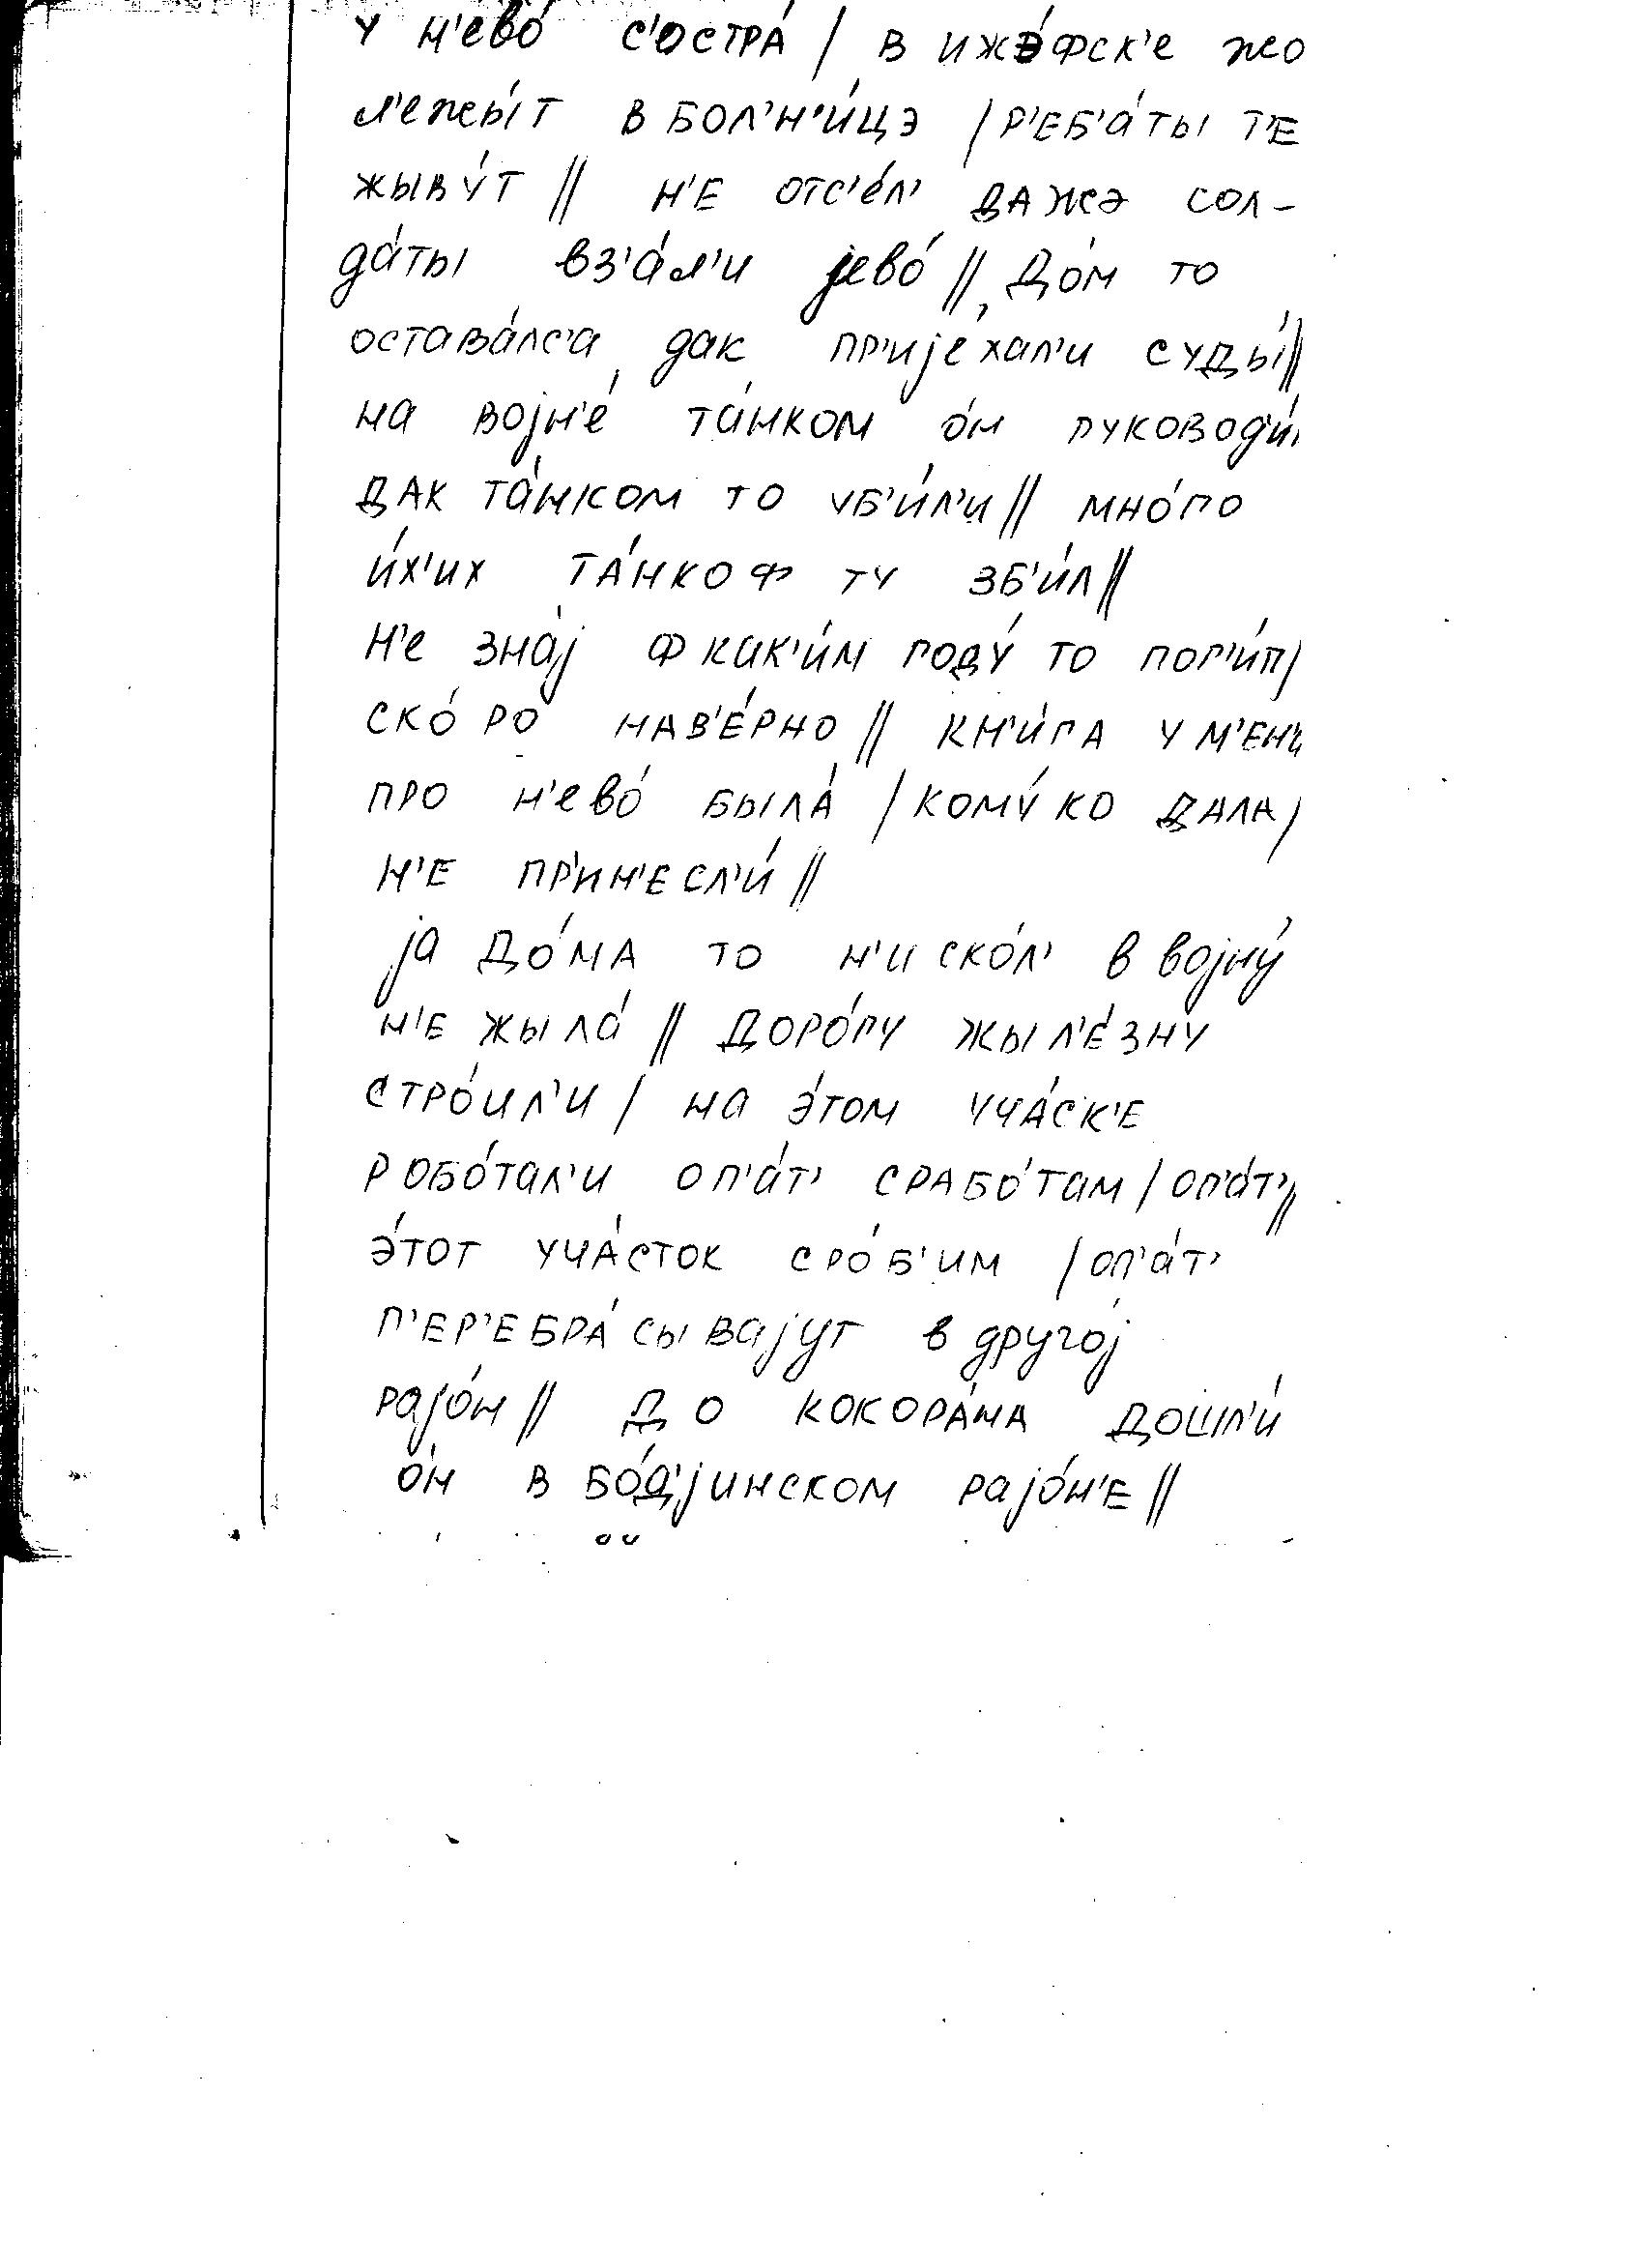 у н'ево́ с'остра́ / в иж́эфск'е жо
л'ежы́т в бол'н'и́цэ / р'еб'а́ты т'е
жыву́т // н'е отс'е́л' даже сол-
да́ты вз'а́л'и јево́ // до́м то
остава́лс'а дак пр'ијéхал'и суды́ //
на војн'е́ та́нком о́н руковод'и́л
дак та́нком то уб'и́л'и // мно́го
и́х'их та́нкоф ту зб'и́л //
н'е зна́ј ф как'и́м году́ то пог'и́п /
ско́ро нав'е́рно // кн'и́га у м'ен'
про н'ево́ была́ / кому́ ко дала /
н'е пр'ин'есл'и́ //
ја до́ма то н'и ско́л' в војну́
н'е жыла́ // доро́гу жыл'е́зну
стро́ил'и / на э́том уча́ск'е
робо́тал'и оп'а́т' срабо́там / оп'а́т' //
э́тот уча́сток сро́б'им / оп'а́т'
п'ер'ебра́сывајут в друго́ј
рајо́н // до кокора́на дошл'и́
о́н в бо́д'јинском рајо́н'е //